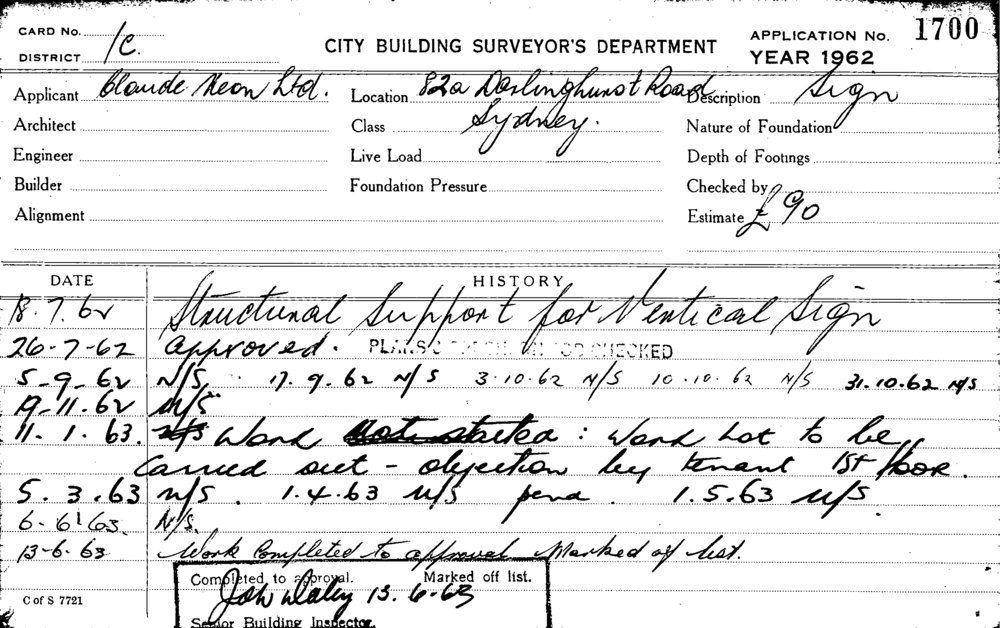 CARD No. 1C. CITY BUILDING SURVEYOR'S DEPARTMENT APPLICATION No. 1700
DISTRICT YEAR 1962
Applicant Claude Neon Ltd. Location 82a Darlinghurst Road Description Sign
Architect Class Sydney. Nature of Foundation
Engineer Live Load Depth of Footings
Builder Foundation Pressure Checked by
Alignment Estimate £90
DATE HISTORY
18.7.62 Structural Support for Vertical Sign
26-7-62 approved. PLANS CHECKED
5-9-62 N/S. 17.9.62 N/S 3.10.62 N/S 10.10.62 N/S 31.10.62 N/S
19-11.62 N/S
11.1.63. N/S Work not started: Work not to be
carried out - objection by tenant 1st floor.
5.3.63 N/S. 1.4.63 N/S pend. 1.5.63 N/S.
6-6-63. N/S.
13-6-63 Work Completed to approval Marked off list.
Completed to approval. Marked off list.
13.6.63
C of S 7721
Senior Building Inspector.